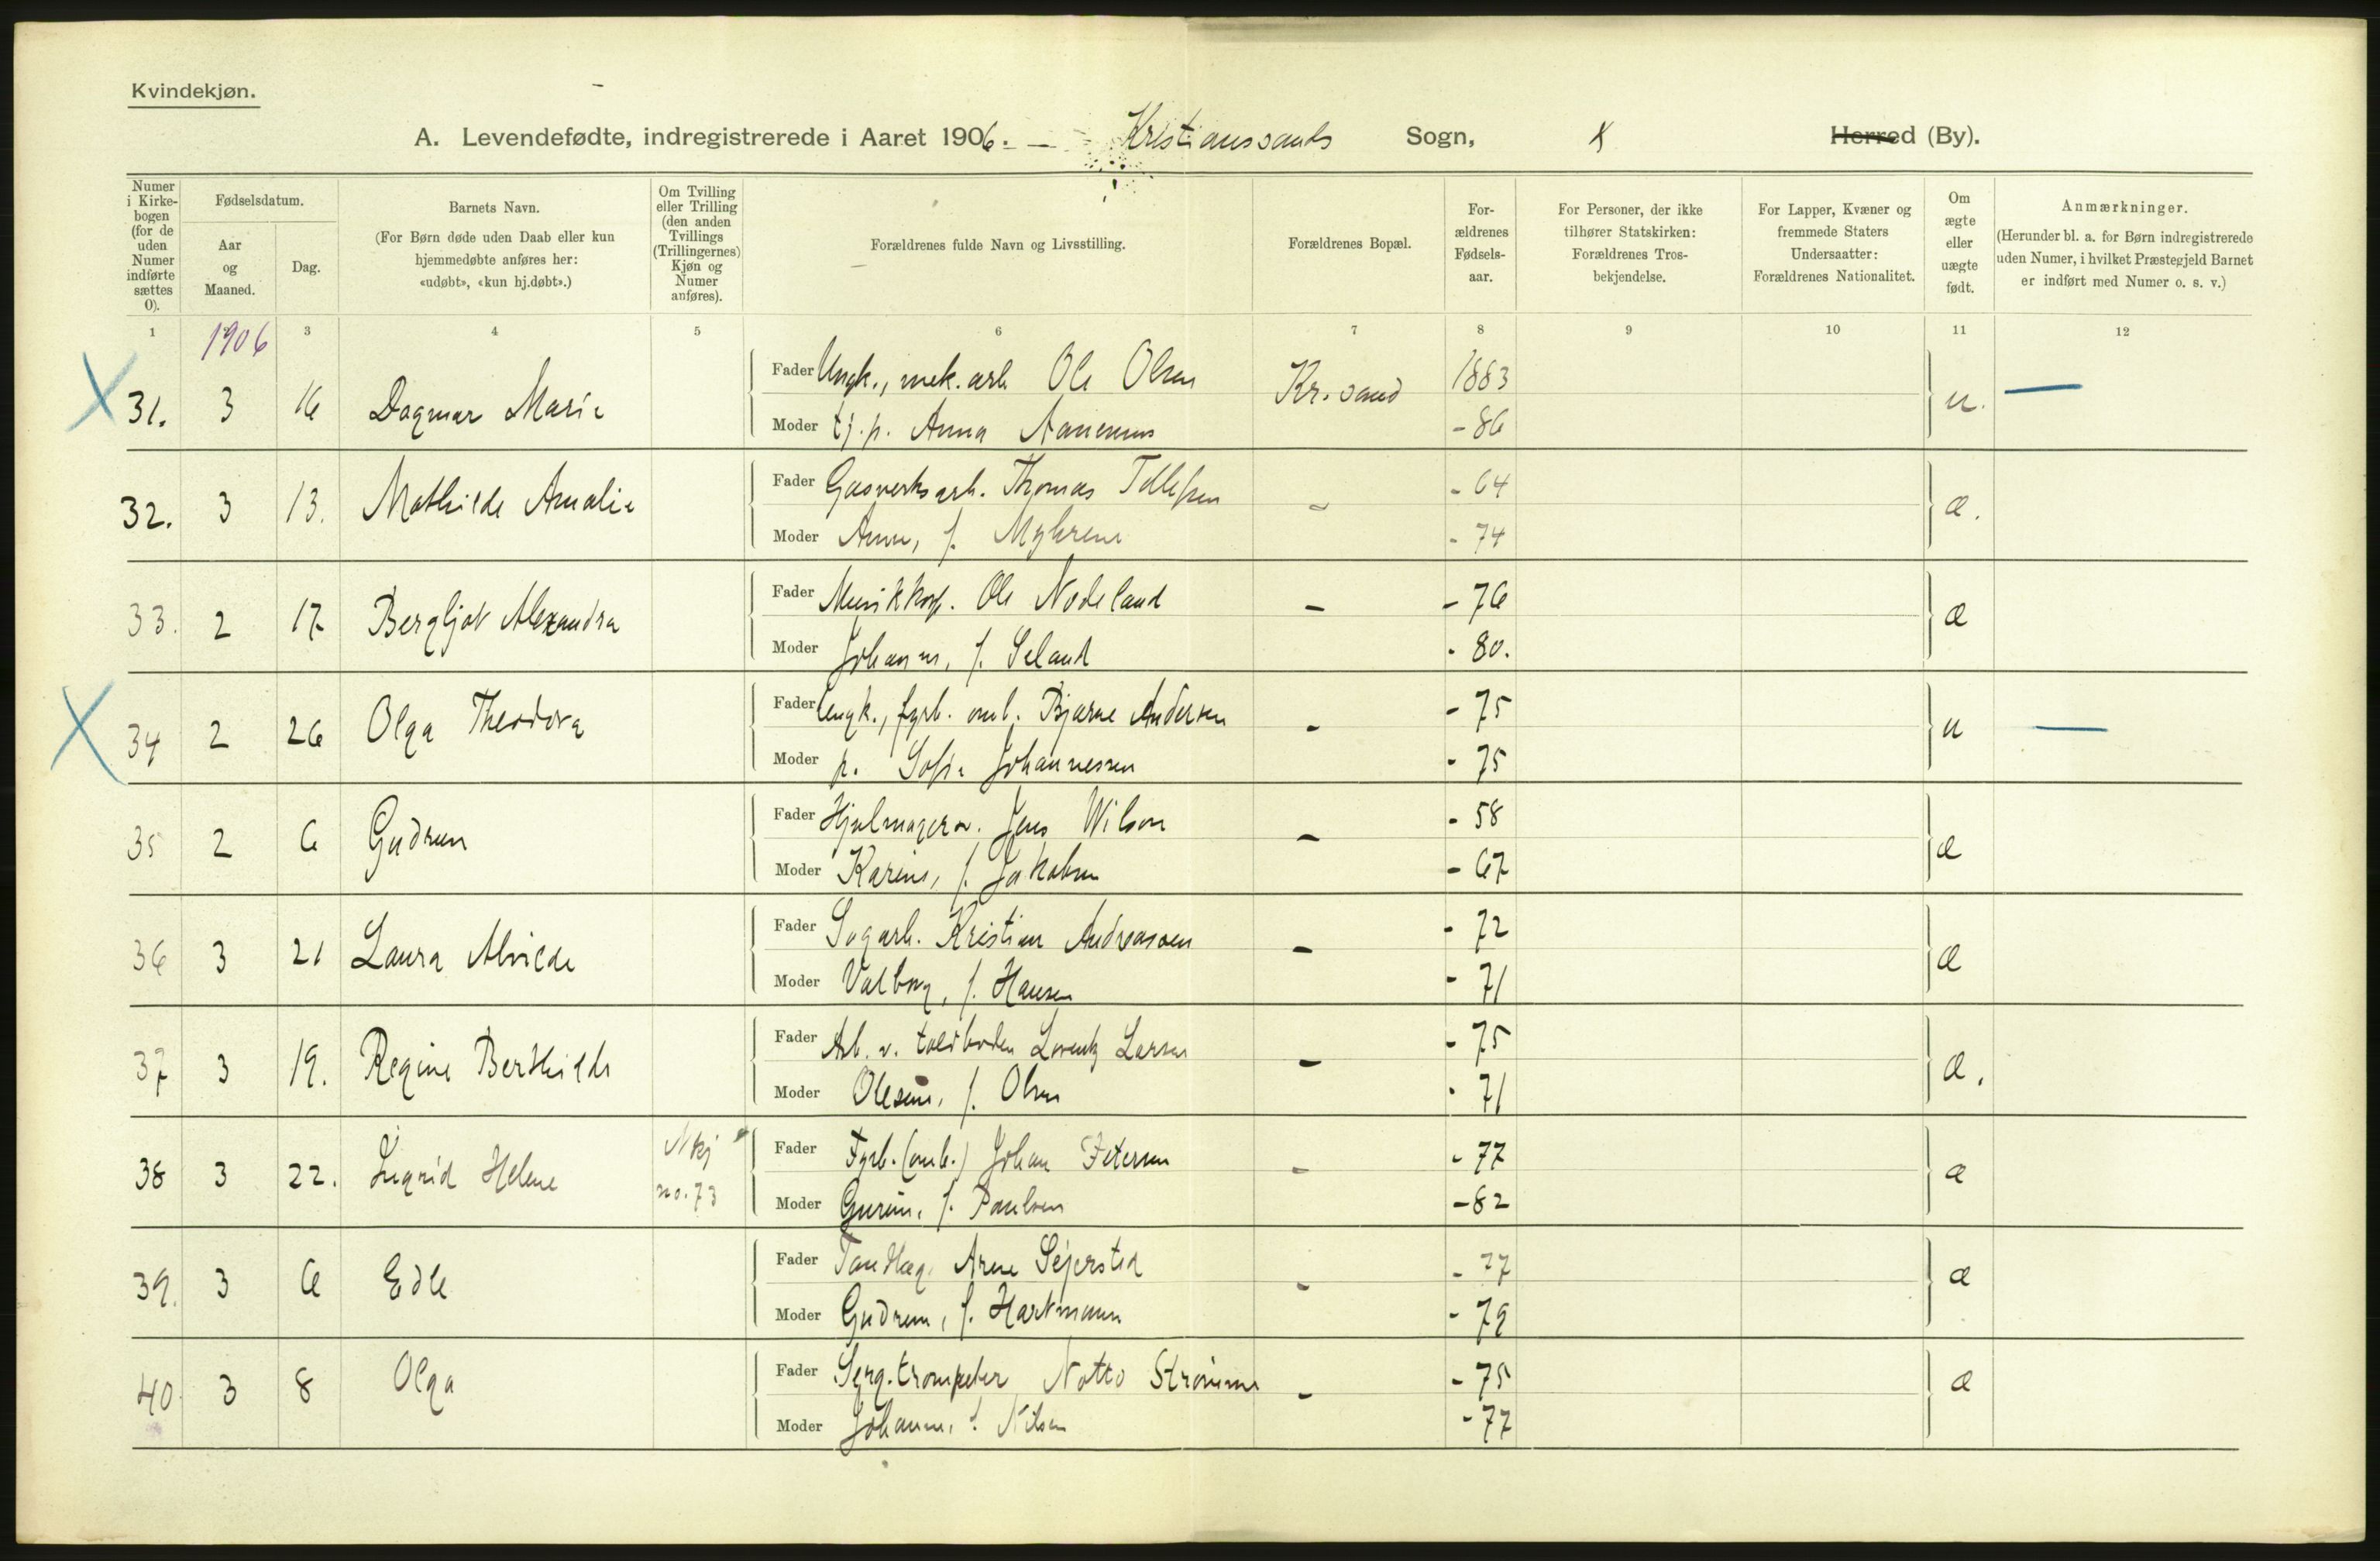 Kvindekjøn.
A. Levendefødte, indregistrerede i Aaret 1906. — Kristianssands Sogn, Herred (By).
Numer i Kirkebogen (for de uden Numer indførte sættes 0).
Fødselsdatum.
Aar og Maaned.
Dag.
Barnets Navn.
(For Børn døde uden Daab eller kun hjemmedøbte anføres her: «udøbt», «kun hj.døbt».)
Om Tvilling eller Trilling (den anden Tvillings (Trillingernes) Kjøn og Numer anføres).
Forældrenes fulde Navn og Livsstilling.
Forældrenes Bopæl.
Forældrenes Fødselsaar.
For Personer, der ikke tilhører Statskirken: Forældrenes Trosbekjendelse.
For Lapper, Kvæner og fremmede Staters Undersaatter: Forældrenes Nationalitet.
Om ægte eller uægte født.
Anmærkninger.
(Herunder bl. a. for Børn indregistrerede uden Numer, i hvilket Præstegjeld Barnet er indført med Numer o. s. v.)
1 3 4 5 6 7 8 9 10 11 12
1906
31. 3 16 Dagmar Marie Fader Ungk., mek. arb. Ole Olsen Kr.sand 1883 u. —
Moder tj. p. Anna Aanensen - 86
32. 3 13. Mathilde Amalie Fader Gasverksarb. Thomas Tellefsen - - 64 æ.
Moder Anne, f. Myhrene - 74
33. 2 17 Bergljot Alexandra Fader Musikkorp. Ole Nodeland - - 76 æ
Moder Johanne, f. Seland - 80.
34 2 26 Olga Theodora Fader Ungk., fyrb. omb. Bjarne Andersen - - 75 u —
Moder p. Sofie Johannessen - 75
35 2 6 Gudrun Fader Hjulmagersv. Jens Wilson - - 58 æ
Moder Karine, f. Jakobsen - 67
36 3 21 Laura Alvilde Fader Sagarb. Kristian Andreassen - - 72 æ
Moder Valborg, f. Hansen - 71
37 3 19. Regine Berthilde Fader Arb. v. toldboden Lorentz Larsen - - 75 æ.
Moder Olesine, f. Olsen - 71
38 3 22. Ingrid Helene Mkj no. 73 Fader Fyrb. (omb.) Johan Petersen - - 77 æ
Moder Gurine, f. Paulsen - 82
39. 3 6 Edle Fader Tandlæg. Arne Sejersted - - 77 æ
Moder Gudrun, f. Hartmann - 79
40 3 8 Olga Fader Serg. trompeter Notto Strømme - - 75 æ
Moder Johanne, f. Nilsen - 77